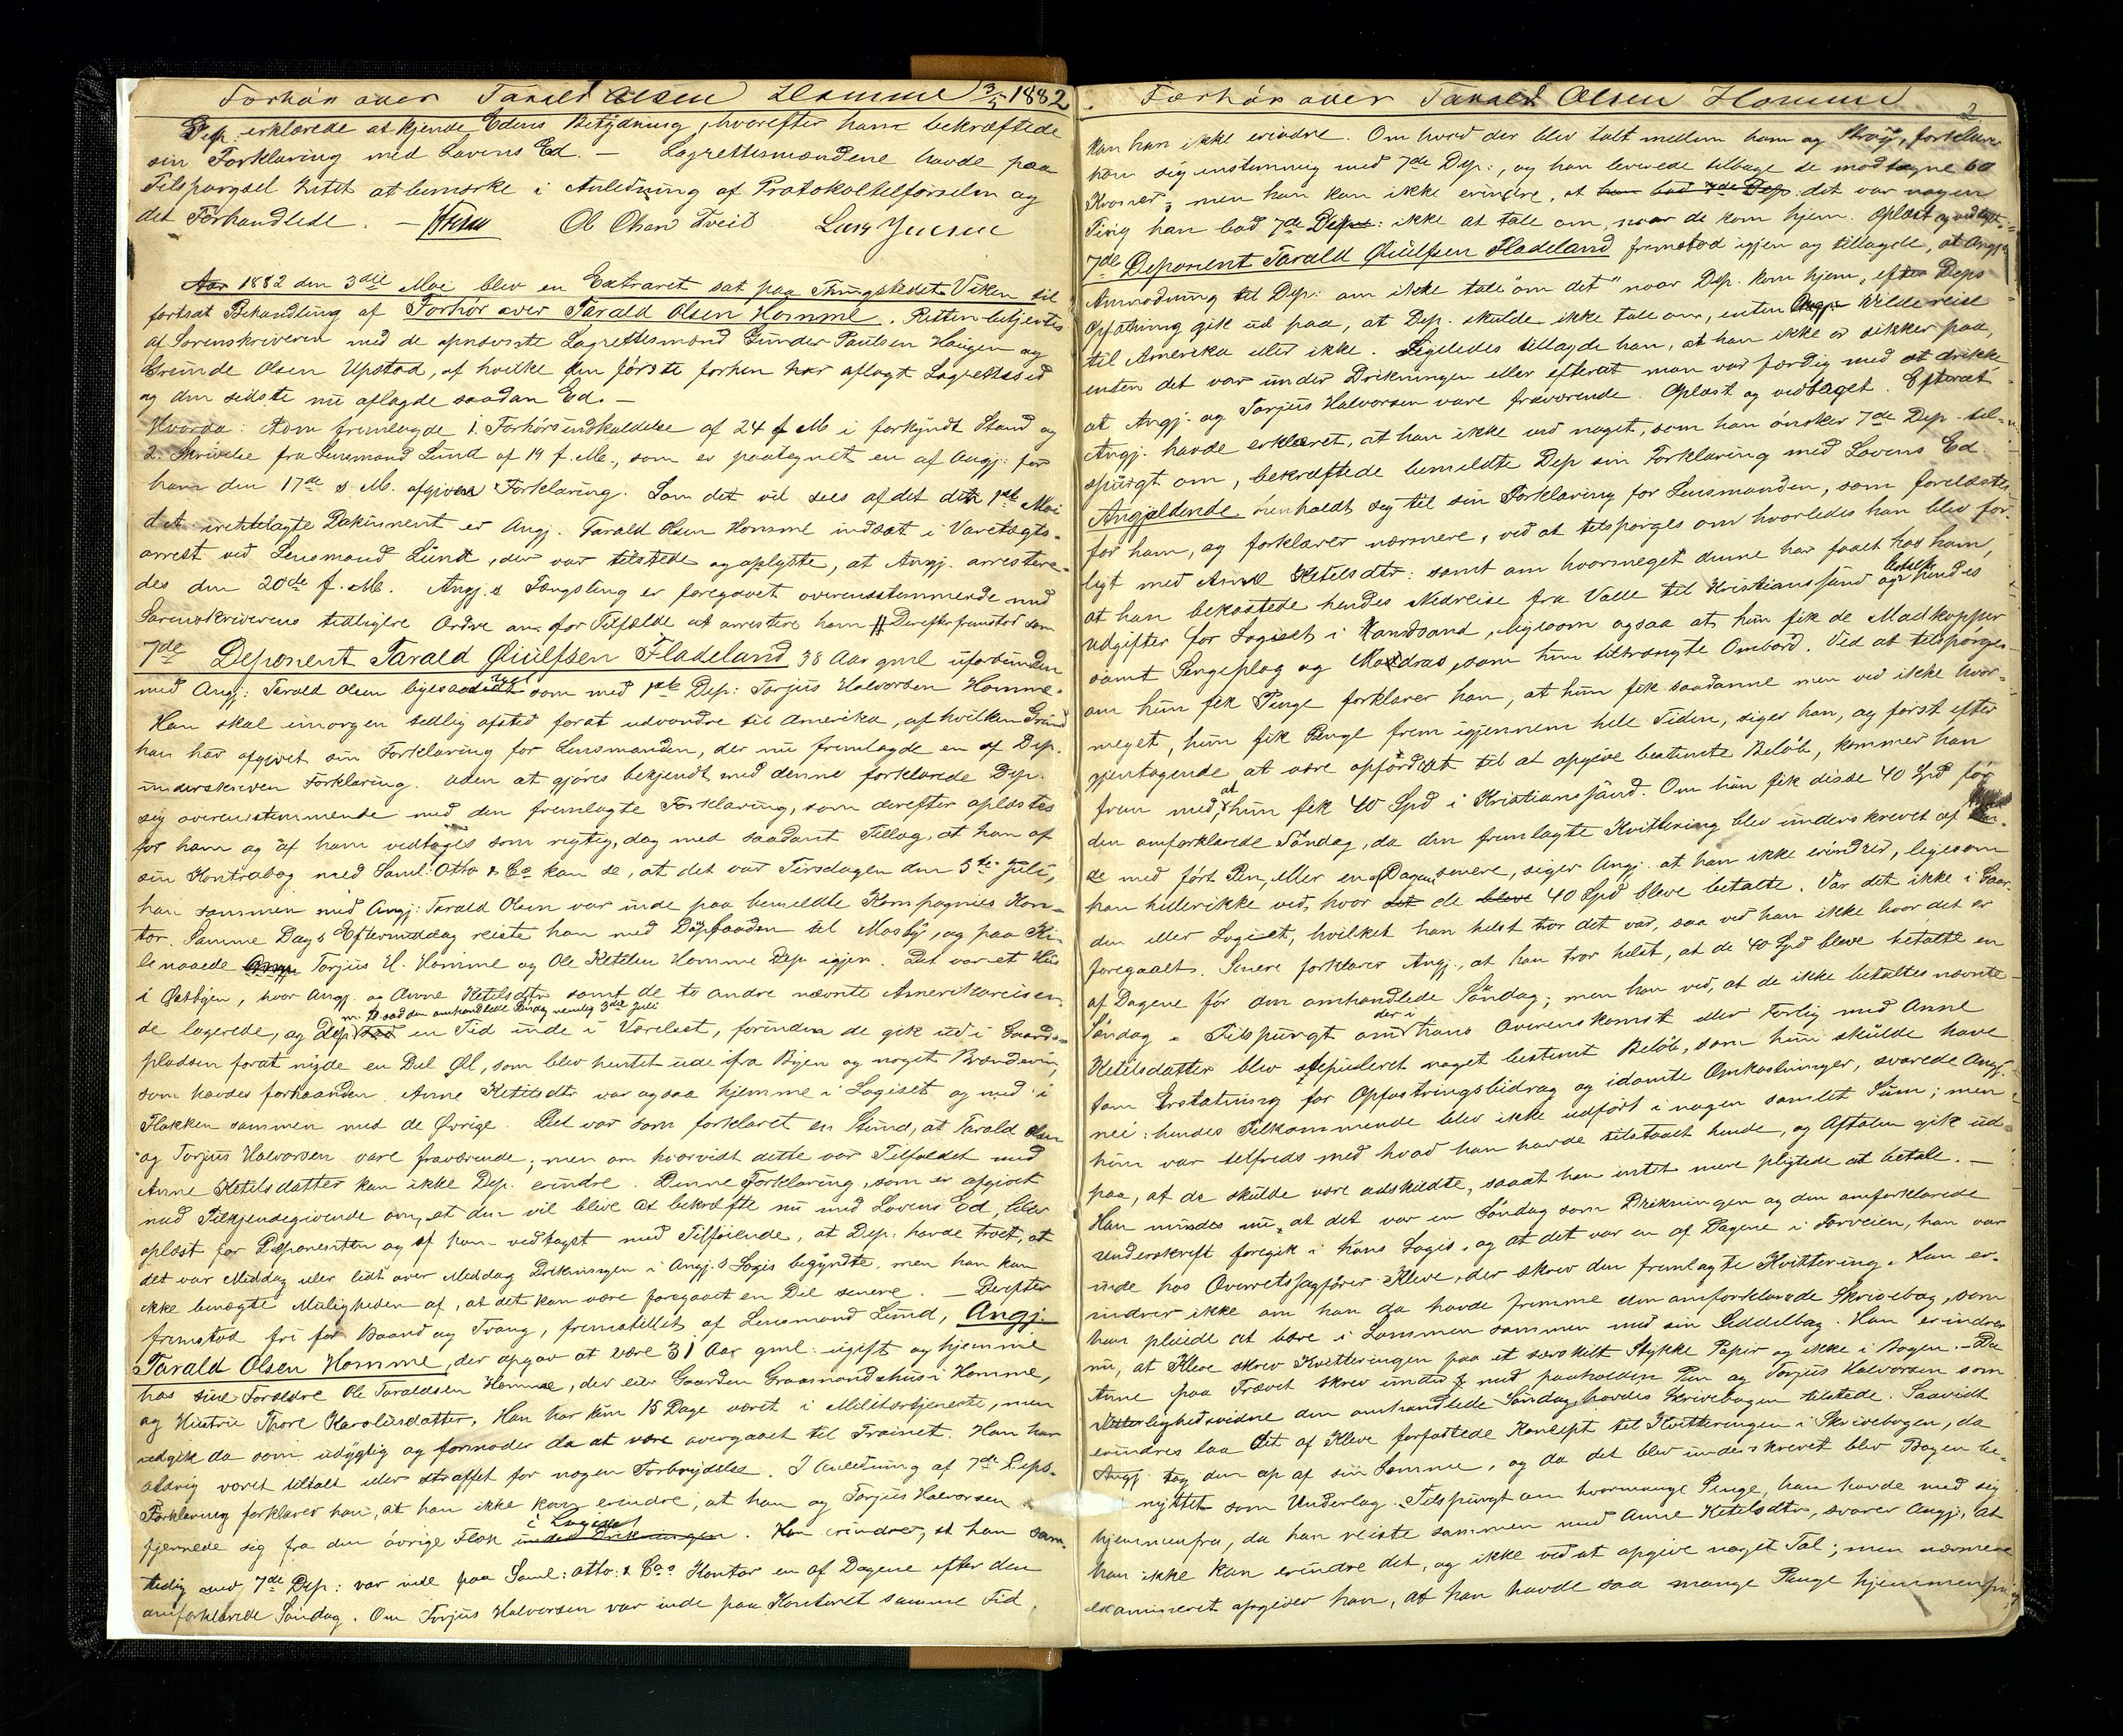 Forhør over Tarald Olsen Homme 3/5 1882
Dep. erklærede at kjende Edens Betydning, hvorefter han bekræftede
sin Forklaring med Lovens Ed. – Lagrettesmændene havde paa
Tilspørgsel Intet at bemærke i Anledning af Protokoltilførselen og
det Forhandlede. – Ol Olsen Tveid
Aar 1882 den 3die Mai blev en Extraret sat paa Thingstedet Viken til
fortsat Behandling af Forhør over Tarald Olsen Homme. Retten betjentes
af Sorenskriveren med de opnævnte Lagrettesmænd Gunder Paulsen Haugen og
Greunde Olsen Upstad, af hvilke den første forhen har aflagt Lagrettesed
og den sidste nu aflagde saadan Ed. –
Hvorda: Adm fremlagde 1. Forhørsindkaldelse af 24 f. M. i forkyndt Stand og
2. Skrivelse fra Lensmand Lund af 19 f. M., som er paategnet en af Angj: for
ham den 17de s. M. afgiven Forklaring. Som det vil sees af det den 1ste Mai
d. A. irettelagte Dokument er Angj. Tarald Olsen Homme indsat i Varetægts-
arrest ved Lensmand Lund, der var tilstede og oplyste, at Angj. arrestere-
des den 20de f. M. Angj.s Fængsling er foregaaet overensstemmende med
Sorenskriverens tidligere Ordre om for Tilfælde at arrestere ham // Derefter fremstod som
7de Deponent Tarald Øiulfsen Fladeland 38 Aar gml ubeslægtet
med Angj: Tarald Olsen ligesaavel som med 1ste Dep: Torjus Halvorsen Homme.
Han skal imorgen tidlig afsted forat udvandre til Amerika, af hvilken Grund
han har afgivet sin Forklaring for Lensmanden, der nu fremlagde en af Dep.
underskreven Forklaring. Uden at gjøres bekjendt med denne forklarede Dep.
sig overensstemmende med den fremlagte Forklaring, som derefter oplæstes
for ham og af ham vedtoges som rigtig, dog med saadant Tillæg, at han af
sin Kontrabog med Saml: Otto & Co kan se, at det var Tirsdagen den 5te Juli,
han sammen med Angj: Tarald Olsen var inde paa bemeldte Kompagnies Kon-
tor. Samme Dags Eftermiddag reiste han med Dampbaaden til Mosby, og paa Ki-
le naaede Torjus H. Homme og Ole Ketilsen Homme Dep igjen. Det var et Hus
i Østbyen, hvor Angj. og Anne Ketilsdtr samt de to andre nævnte Amerikareisen-
m. fl. sad den omhandlede Søndag nemlig 3die Juli
de logerede, og Dep. en Tid inde i Værelset, forinden de gik ud i Gaards-
pladsen forat nyde en Del Øl, som blev hentet ude ifra Byen og noget Brændevin,
som havdes forhaanden. Anne Ketilsdtr var ogsaa hjemme i Logiset og med i
Flokken sammen med de Øvrige. Det var som forklaret en Stund, at Tarald Olsen
og Torjus Halvorsen vare fraværende; men om hvorvidt dette var Tilfældet med
Anne Ketilsdatter kan ikke Dep. erindre. Denne Forklaring, som er afgivet
med Tilkjendegivende om, at den vil blive at bekræfte nu med Lovens Ed, blev
oplæst for Deponenten og af ham vedtaget med Tilføiende, at Dep: havde troet, at
det var Middag eller lidt over Middag Drikningen i Angj.s Logis begyndte, men han kan
ikke benægte Muligheden af, at det kan være foregaaet en Del senere. – Derefter
fremstod fri for Baand og Tvang, fremstillet af Lensmand Lund, Angj.
Tarald Olsen Homme, der opgav at være 31 Aar gml: ugift og hjemme
hos sine Forældre Ole Taraldsen Homme, der eier Gaarden Graamandshus i Homme,
og Hustru Thore Karolusdatter. Han har kun 15 Dage været i Militærtjeneste, men
udgik da som udygtig og formoder da at være overgaaet til Trainet. Han har
aldrig været tiltalt eller straffet for nogen Forbrydelse. I Anledning af 7de Deps.
Forklaring forklarer han, at han ikke kan erindre, at han og Torjus Halvorsen
i Logiset
fjernede sig fra den øvrige Flok under Drikningen. Han erindrer, at han sam-
tidig med 7de Dep: var inde paa Saml: Otto: & Cos Kontor en af Dagene efter den
omforklarede Søndag. Om Torjus Halvorsen var inde paa Kontoret samme Tid
Forhør over Tarald Olsen Homme 2
kan han ikke erindre. Om hvad der blev talt mellem ham og forklarer
han sig enstemmig med 7de Dep:, og han leverede tilbage de modtagne 60
Kroner; men han kan ikke erindre, at han bad 7de Dep. det var nogen
Ting han bad 7de Dep: ikke at tale om, naar de kom hjem. Oplæst og vedtaget.
7de Deponent Tarald Øiulfsen Fladeland fremstod igjen og tillagde, at Angj.
Anmodning til Dep: om ikke tale "om det" naar Dep. kom hjem, efter Deps
Opfatning gik ud paa, at Dep. skulde ikke tale om, enten Angj. vilde reise
til Amerika eller ikke. Ligeledes tillagde han, at han ikke er sikker paa,
enten det var under Drikningen eller efterat man var færdig med at drikke
at Angj. og Torjus Halvorsen vare fraværende. Oplæst og vedtaget. Efterat
Angj. havde erklæret, at han ikke ved noget, som han ønsker 7de Dep til-
spurgt om, bekræftede bemeldte Dep sin Forklaring med Lovens Ed.
Angjældende henholdt sig til sin Forklaring for Lensmanden, som forelæstes
for ham, og forklarer nærmere, ved at tilspørges om hvorledes han blev for-
ligt med Anne Ketilsdtr: samt om hvormeget denne har faaet hos ham,
at han bekostede hendes Nedreise fra Valle til Kristianssund og hendes
Udgifter for Logiset i Kandsand, ligesom ogsaa at hun fik de Madkopper
samt Sengeplag og Madras, som hun tiltrængte Ombord. Ved at tilspørges
om hun fik Penge forklarer han, at hun fik saadanne men ved ikke hvor-
meget, hun fik Penge frem igjennem hele Tiden, siger han, og først efter
gjentagende at være opfordret til at opgive bestemte Beløb, kommer han
frem med, at hun fik 40 Spd i Kristianssand. Om hun fik disse 40 Spd før
den omforklarede Søndag, da den fremlagte Kvittering blev underskrevet af hen-
de med ført Pen, eller en af Dagene senere, siger Angj. at han ikke erindrer, ligesom
han heller ikke ved, hvor de 40 Spd bleve betalte. Var det ikke i Gaar-
den eller Logiset, hvilket han helst tror det var, saa ved han ikke hvor det er
foregaaet. Senere forklarer Angj., at han tror helst, at de 40 Spd bleve betalte en
af Dagene før den omhandlede Søndag; men han ved, at de ikke betaltes nævnte
Søndag. Tilspurgt om der i hans Overenskomst eller Forlig med Anne
Ketilsdatter blev stipuleret noget bestemt Beløb, som hun skulde have
som Erstatning for Opfostringsbidrag og idømte Omkostninger, svarede Angj.
nei: hendes Tilkommende blev ikke udført i nogen samlet Sum; men
hun var tilfreds med hvad han havde tilstaaet hende, og Aftalen gik ud
paa, at de skulde være adskildte, saaat han intet mere pligtede at betale. –
Han mindes nu, at det var en Søndag som Drikningen og den omforklarede
Underskrift foregik i hans Logis, og at det var en af Dagene i Forveien, han var
inde hos Overretssagfører Kleve, der skrev den fremlagte Kvittering. Han er-
indrer ikke om han da havde fremme den omforklarede Skrivebog, som
han pleiede at bære i Lommen sammen med sin Seddelbog. Han erindrer
nu, at Kleve skrev Kvitteringen paa et særskilt Stykke Papir og ikke i Bogen. – Da
Anne paa Trævet skrev under med paaholden Pen og Torjus Halvorsen som
Vitterlighedsvidne den omhandlede Søndag, havdes Skrivebogen tilstede. Saavidt
erindres laa det af Kleve forfattede Koncept til Kvitteringen i Skrivebogen, da
Angj. tog den op af sin Lomme, og da det blev underskrevet blev Bogen be-
nyttet som Underlag. Tilspurgt om hvormange Penge, han havde med sig
hjemmenfra, da han reiste sammen med Anne Ketilsdtr, svarer Angj., at
han ikke kan erindre det, og ikke ved at opgive noget Tal; men nærmere
examineret opgiver han, at han havde saa mange Penge hjemmenfra,